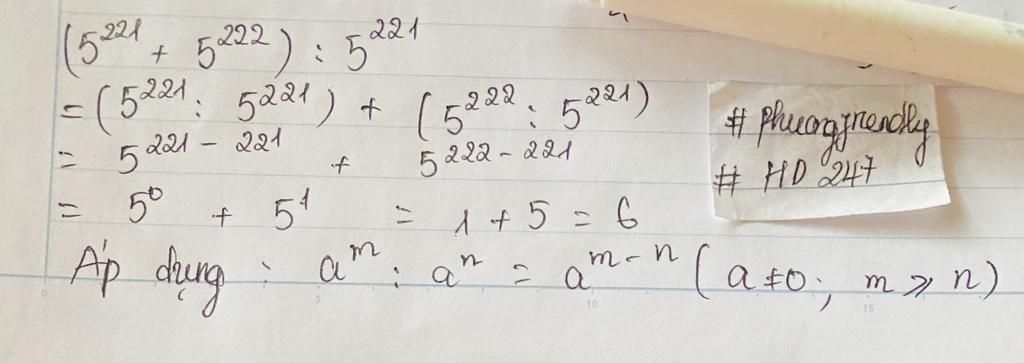 (5²²¹ + 5²²²) : 5²²¹
= (5²²¹ : 5²²¹) + (5²²² : 5²²¹)
= 5²²¹⁻²²¹ + 5²²²⁻²²¹
= 5⁰ + 5¹ = 1 + 5 = 6
Áp dụng : aᵐ : aⁿ = aᵐ⁻ⁿ (a ≠ 0; m ⩾ n)
# phuongfriendly
# HD 247
0 5 10 15